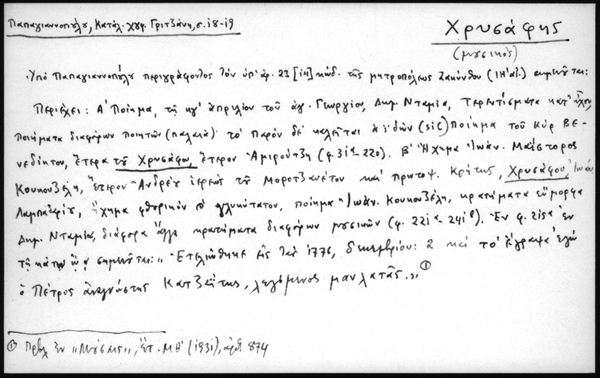 Παπαγιαννοπούλου, Κατάλ. χφφ. Γριτσάνη, σ. ι8-ι9
Χρυσάφης
(μουσικός)
Ὑπὸ Παπαγιαννοπούλου περιγράφοντος τὸν ὑπ' ἀρ. 23 [ΙΝ] κώδ. τῆς μητροπόλεως Ζακύνθου (ΙΗ' αἰ.) σημειοῦται:
Περιέχει: Α' Ποίημα, τῇ κγ' ἀπριλίου τοῦ ἁγ. Γεωργίου, Δημ. Νταμία, Τερεντίσματα κατ' ἦχον,
ποιήματα διαφόρων ποιητῶν (παλαιὰ) τὸ παρὸν δὲ καλεῖται ἀϊδών (sic) ποίημα τοῦ κὺρ Βε-
νεδίκτου, ἕτερα τοῦ Χρυσάφου, ἕτερον Ἀμιρούτζη (φ. 31α-220). Β' Ἤχημα Ἰωάν. Μαΐστορος
Κουκουζέλη, ἕτερον Ἀνδρέου ἱερέως τοῦ Μοροτζανέτου καὶ πρωτοψ. Κρήτης, Χρυσάφου, Ἰωάν.
Λαμπαδαρίου, ἤχημα φθορικὸν γλυκύτατον, ποίημα Ἰωάν. Κουκουζέλη, κρατήματα εὔμορφα
Δημ. Νταμία, διάφορα ἄλλα κρατήματα διαφόρων μουσικῶν (φ. 221α-241β). Ἐν φ. 215α ἐν
τῇ κάτω ὤᾳ σημειοῦται: „Ἐτελιώθηκε εἰς τὰ 1776, δεκεμβρίου: 2 καὶ τὸ ἔγραψα ἐγὼ
ὁ Πέτρος ἀναγνώστης Κατζαΐτης, λεγόμενος μανλατᾶς.„ ①
① Πρβλ. ἐν „Μούσαις„, ἔτ. ΜΘ' (1931), ἀρθ. 874